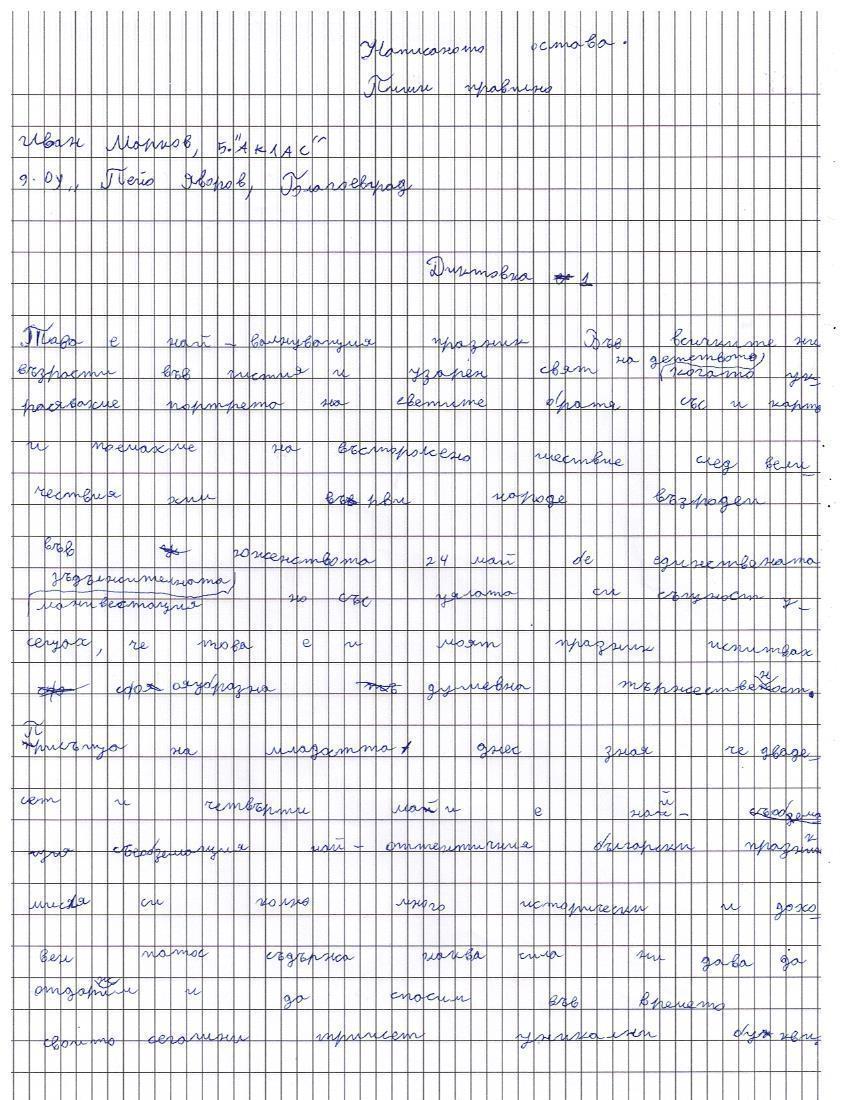 Написаното остава.
Пиши правилно
Иван Марков, 5."А клас"
9. ОУ,, Пейо Яворов, Благоевград
Диктовка 1
Това е най - волнуващия празник Във всичките ни
възрасти във чистия и узарен свят на детството, когато ук-
расявахме портрета на светите братя със и карти
и поемахме на въсторжено шествие след вели-
чествия хим върви народе възродени
във юженството 24 май бе единствената
зъдължителната манивестация но със цялата си същност у-
сещах, че това е и моят празник испитвах
своя ояобразна душевна тържественост.
Присъща на младостта днес зная че дваде-
сет и четвърти маи е най-
съобземащия най - оттентичния български празник
мисля си колко много исторически и дохо-
вен патос съдържа каква сила ни дава да
отдарим и да спосим във времето
своито сегашни трийсет уникални букви.